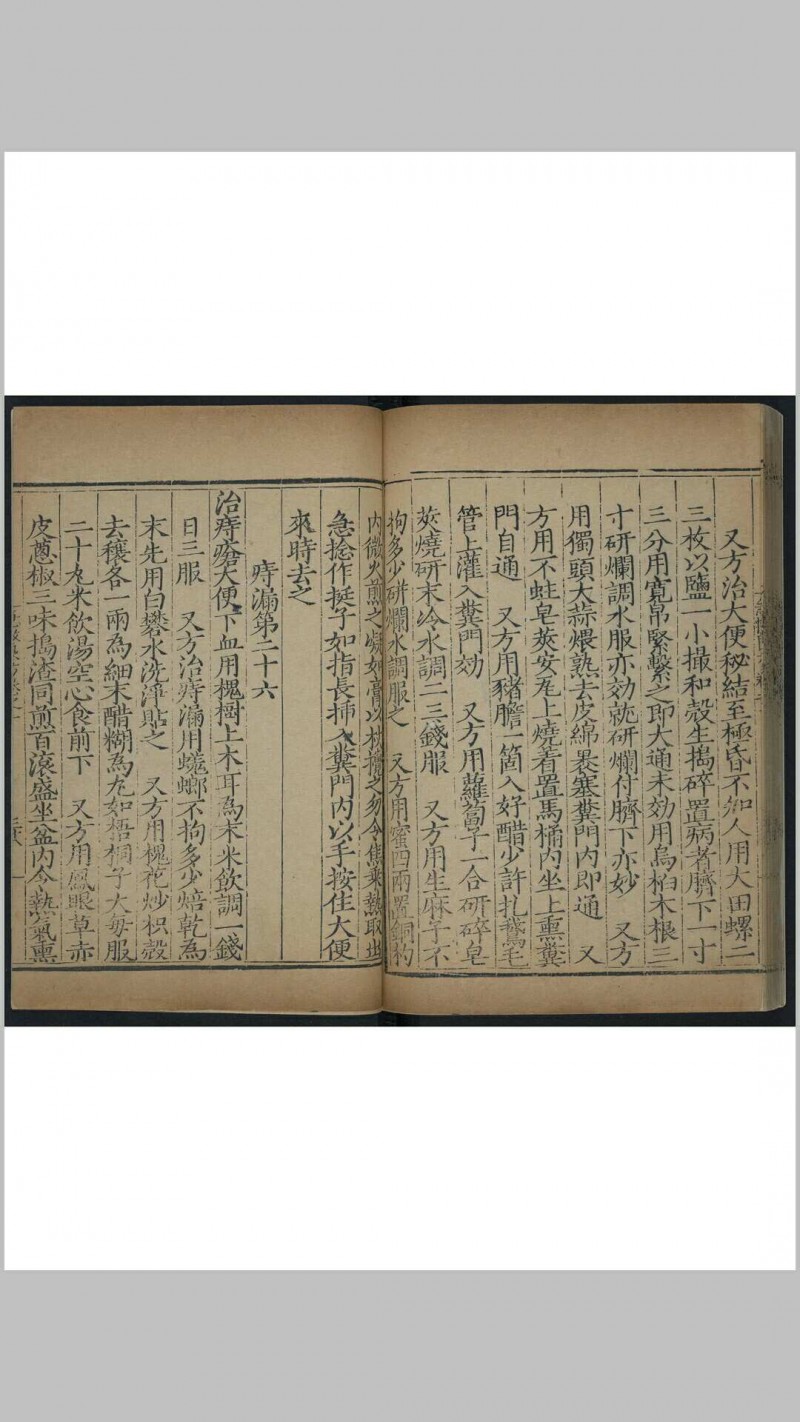 又方治大便秘結至極昏不知人用大田螺二
三枚以鹽一小撮和殼生搗碎置病者臍下一寸
三分用寬帛緊繫之即大通未効用烏桕木根三
寸研爛調水服亦効就研爛付臍下亦妙 又方
用獨頭大蒜煨熟去皮綿裹塞糞門內即通 又
方用不蛀皂莢安瓦上燒着置馬桶內坐上熏糞
門自通 又方用豬膽一箇入好醋少許扎鵞毛
管上灌入糞門効 又方用蘿蔔子一合研碎皂
莢燒研末冷水調二三錢服 又方用生麻子不
拘多少研爛水調服之 又方用蜜四兩置銅杓
內微火煎之凝如膏以杖攪之勿令焦乘熱取出
急捻作挺子如指長挿入糞門內以手按住大便
來時去之
痔漏第二十六
治痔瘡大便下血用槐樹上木耳為末米飲調一錢
日三服 又方治痔漏用蜣螂不拘多少焙乾為
末先用白礬水洗淨貼之 又方用槐花炒枳殼
去穰各一兩為細末醋糊為丸如梧桐子大每服
二十丸米飲湯空心食前下 又方用鳳眼草赤
皮蔥椒三味搗渣同煎百滾盛坐盆內令熱氣熏